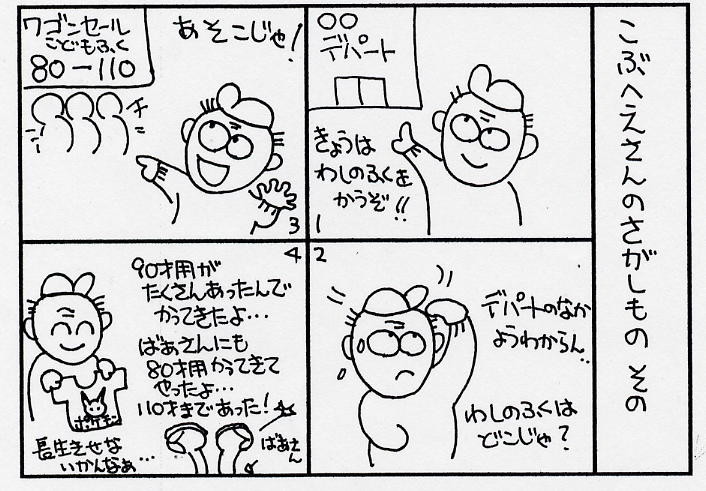 こぶへえさんのさがしもの その
〇〇
デパート
きょうは
わしのふくを
かうぞ!!
1
2
デパートのなか
ようわからん..
わしのふくは
どこじゃ?
ワゴンセール
こどもふく
80-110
あそこじゃ!
チ
3
4
90才用が
たくさんあったんで
かってきたよ…
ばあさんにも
80才用かってきて
やったよ…
110才まであった!
ポケモン
長生きせな
いかんなぁ…
ばあさん